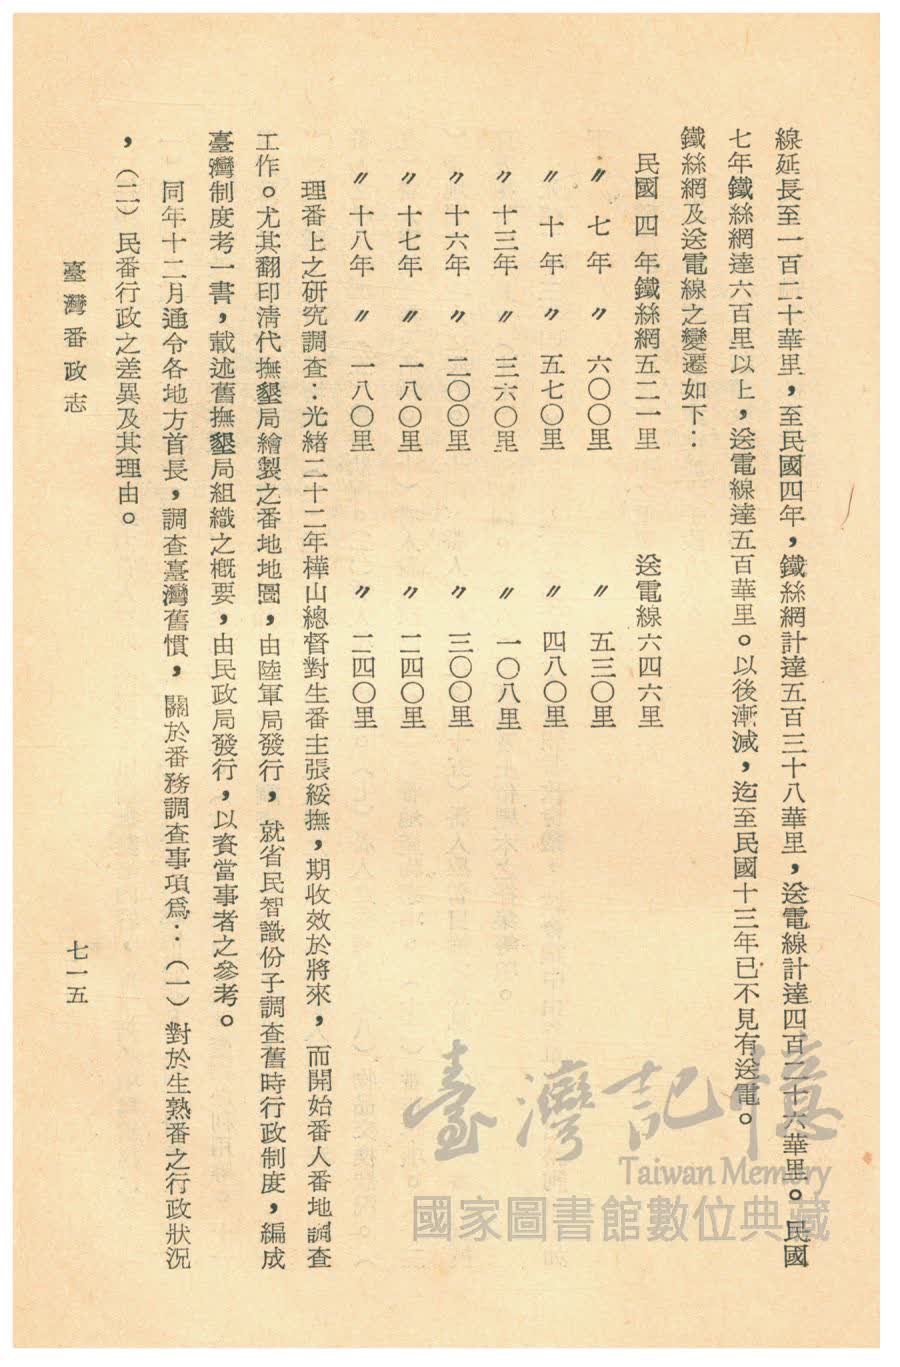 線延長至一百二十華里，至民國四年，鐵絲網計達五百三十八華里，送電線計達四百二十六華里。民國
七年鐵絲網達六百里以上，送電線達五百華里。以後漸減，迄至民國十三年已不見有送電。
鐵絲網及送電線之變遷如下：
民國　四　年鐵絲網五二一里　送電線六四六里
〃　七　年　〃　六〇〇里　〃　五三〇里
〃　十　年　〃　五七〇里　〃　四八〇里
〃　十三年　〃　三六〇里　〃　一〇八里
〃　十六年　〃　二〇〇里　〃　三〇〇里
〃　十七年　〃　一八〇里　〃　二四〇里
〃　十八年　〃　一八〇里　〃　二四〇里
理番上之研究調查：光緒二十二年樺山總督對生番主張綏撫，期收效於將來，而開始番人番地調查
工作。尤其翻印清代撫墾局繪製之番地地圖，由陸軍局發行，就省民智識份子調查舊時行政制度，編成
臺灣制度考一書，載述舊撫墾局組織之概要，由民政局發行，以資當事者之參考。
同年十二月通令各地方首長，調查臺灣舊慣，關於番務調查事項爲：（一）對於生熟番之行政狀況
，（二）民番行政之差異及其理由。
臺灣番政志　七一五
臺灣記憶
Taiwan Memory
國家圖書館數位典藏